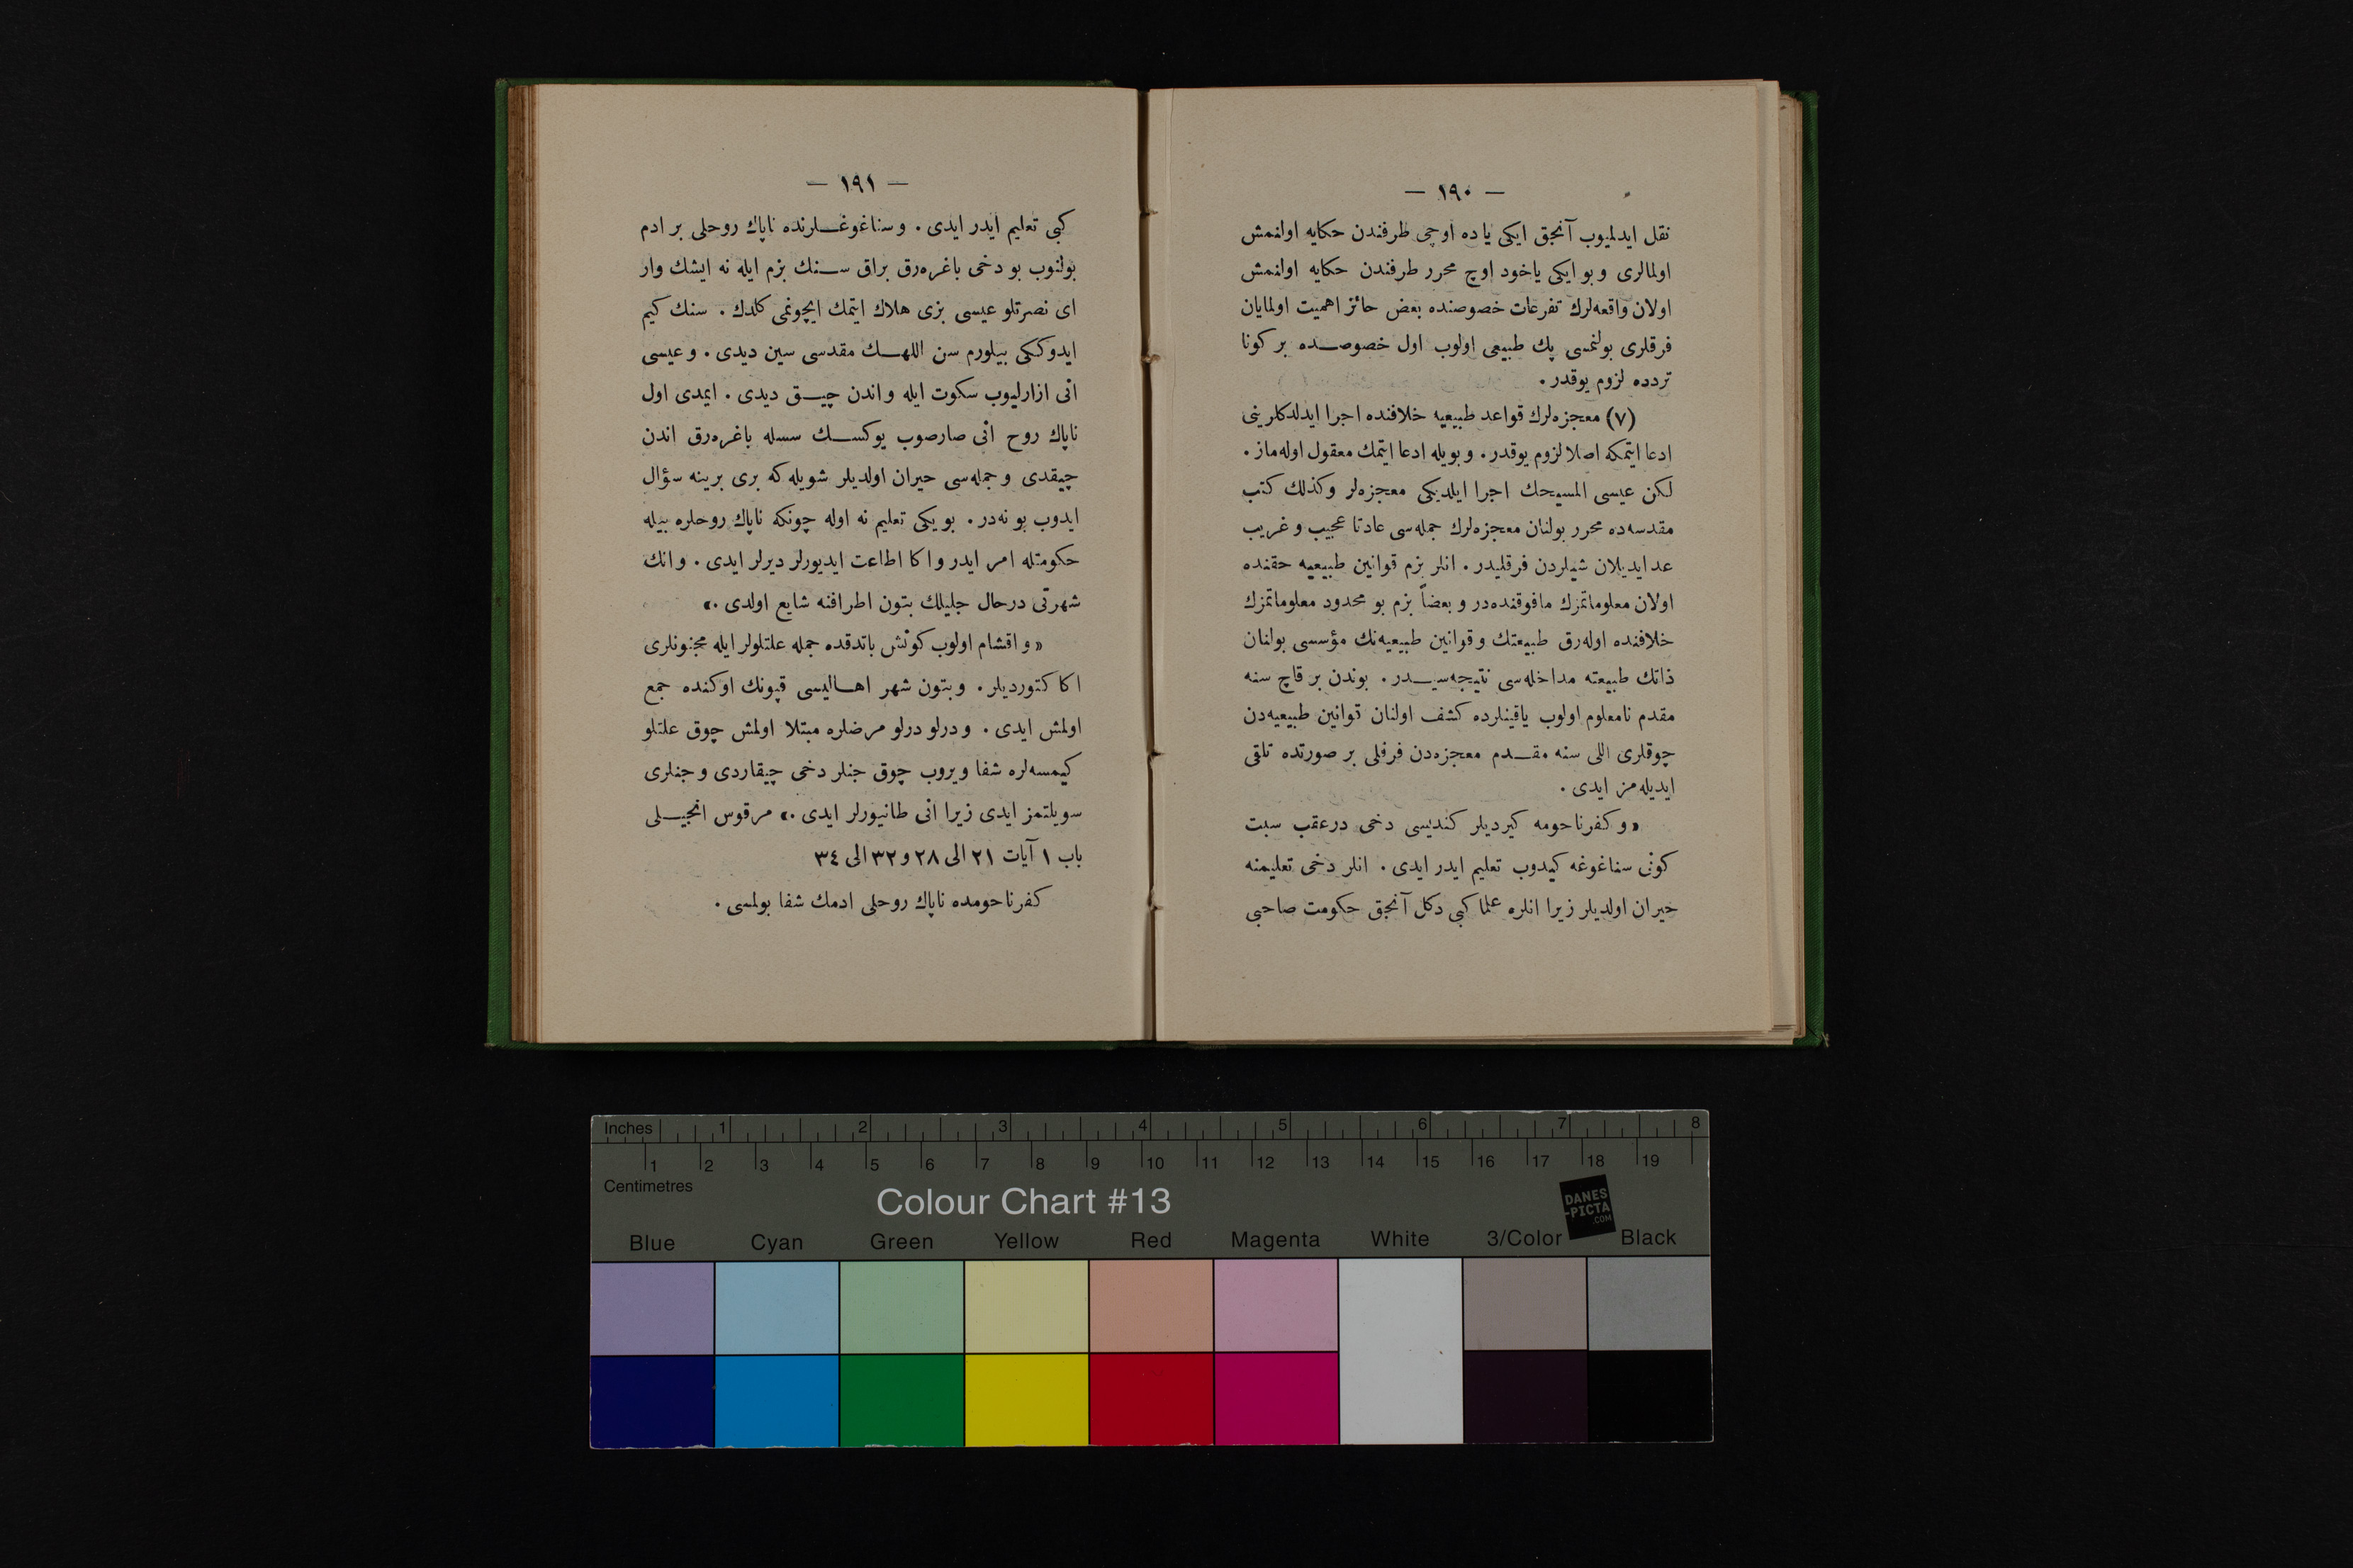 — ١٩٠ —
نقل ايدلميوب آنجق ايكى يا ده اوچى طرفندن حكايه اولنمش
اولمالرى و بو ايكى ياخود اوچ محرر طرفندن حكايه اولنمش
اولان واقعه‌لرك تفرعات خصوصنده بعض حائز اهميت اولمايان
فرقلرى بولنمسى پك طبيعى اولوب اول خصوصـده بر كونا
تردده لزوم يوقدر .
(٧) معجزه‌لرك قواعد طبيعيه خلافنده اجرا ايدلدكلرينى
ادعا ايتمكه اصلا لزوم يوقدر . و بويله ادعا ايتمك معقول اوله‌ماز .
لكن عيسى المسيحك اجرا ايلديكى معجزه‌لر وكذلك كتب
مقدسه‌ده محرر بولنان معجزه‌لرك جمله‌سى عادتا عجيب و غريب
عد ايديلان شيلردن فرقليدر . انلر بزم قوانين طبيعيه حقنده
اولان معلوماتمزك مافوقنده‌در و بعضاً بزم بو محدود معلوماتمزك
خلافنده اوله‌رق طبيعتك و قوانين طبيعيه‌نك مؤسسى بولنان
ذاتك طبيعته مداخله‌سى نتيجه‌سيـدر . بوندن بر قاچ سنه
مقدم نامعلوم اولوب ياقينلرده كشف اولنان قوانين طبيعيه‌دن
چوقلرى اللى سنه مقـدم معجزه‌دن فرقلى بر صورتده تلقى
ايديله‌مز ايدى .
« و كفرناحومه كيرديلر كنديسى دخى درعقب سبت
كونى سناغوغه كيدوب تعليم ايدر ايدى . انلر دخى تعليمنه
حيران اولديلر زيرا انلره علما كبى دكل آنجق حكومت صاحبى
— ١٩١ —
كبى تعليم ايدر ايدى . و سناغوغـلرنده ناپاك روحلى بر ادم
بولنوب بو دخى باغره‌رق براق سـنك بزم ايله نه ايشك وار
اى نصرتلو عيسى بزى هلاك ايتمك ايچونمى كلدك . سنك كيم
ايدوككى بيلورم سن اللهـك مقدسى سين ديدى . و عيسى
انى ازارليوب سكوت ايله و اندن چيـق ديدى . ايمدى اول
ناپاك روح انى صارصوب يوكسـك سسله باغره‌رق اندن
چيقدى و جمله‌سى حيران اولديلر شويله‌كه برى برينه سؤال
ايدوب بو نه‌در . بو يكى تعليم نه اوله چونكه ناپاك روحلره بيله
حكومتله امر ايدر و اكا اطاعت ايديورلر ديرلر ايدى . و انك
شهرتى درحال جليلك بتون اطرافنه شايع اولدى .»
« و اقشام اولوب كونش باتدقده جمله علتلولر ايله مجنونلرى
اكا كتورديلر . و بتون شهر اهـاليسى قپونك اوكنده جمع
اولمش ايدى . و درلو درلو مرضلره مبتلا اولمش چوق علتلو
كيمسه‌لره شفا ويروب چوق جنلر دخى چيقاردى و جنلرى
سويلتمز ايدى زيرا انى طانيورلر ايدى .» مرقوس انجيـلى
باب ١ آيات ٢١ الى ٢٨ و ٣٢ الى ٣٤
كفرناحومده ناپاك روحلى ادمك شفا بولمسى .
Inches 1 2 3 4 5 6 7 8
1 2 3 4 5 6 7 8 9 10 11 12 13 14 15 16 17 18 19
Centimetres
Colour Chart #13
DANES
-PICTA
.COM
Blue Cyan Green Yellow Red Magenta White 3/Color Black